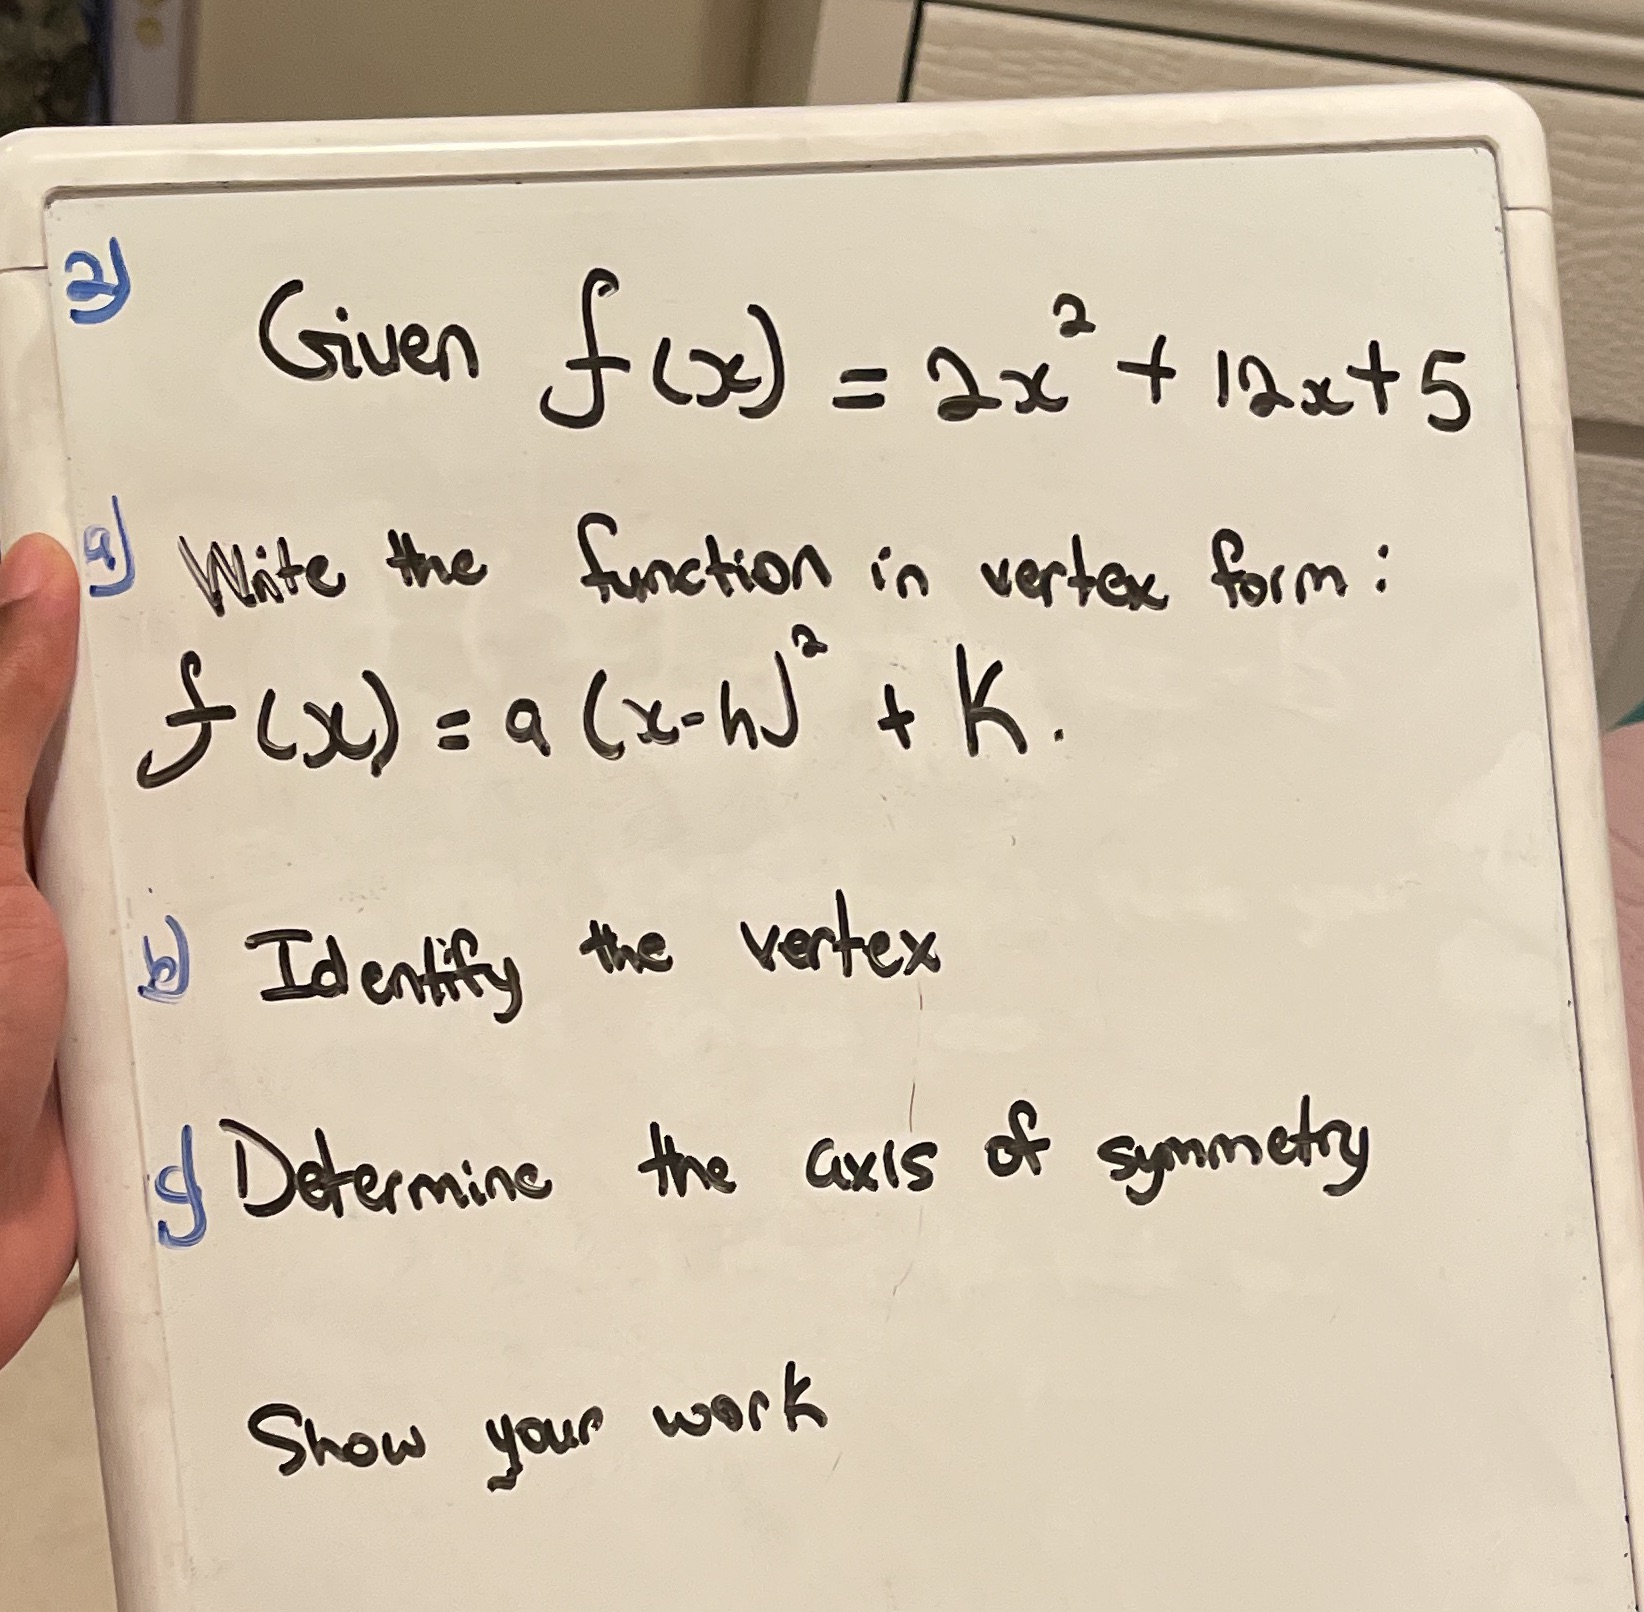 2)
Given f(x) = 2x² + 12x + 5
a) Write the function in vertex form:
f(x) = a (x-h)² + K.
b) Identify the vertex
c) Determine the axis of symmetry
Show your work